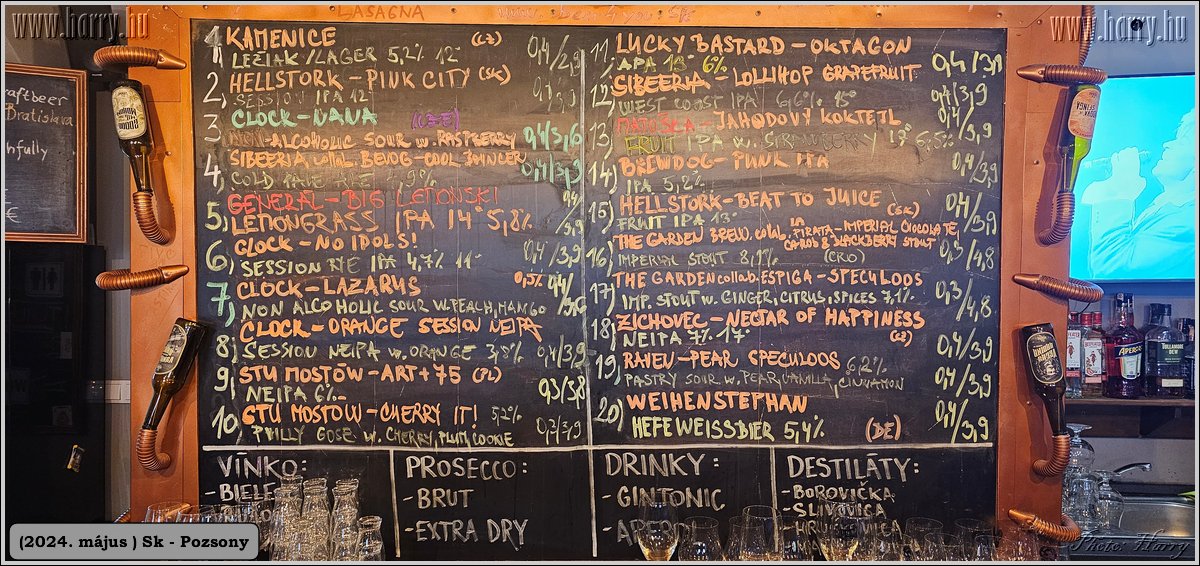 www.harry.hu
LASAGNA
www.harry.hu
craftbeer
Bratislava
€
1, KAMENICE (CZ)
LEŽIAK/LAGER 5,2% 12° 0,4/2,9
2, HELLSTORK-PINK CITY (SK)
SESSION IPA 12°
3, CLOCK-NANA
NON-ALCOHOLIC SOUR W. RASPBERRY 0,4/3,6
4, SIBEERIA collab. BEVOG-COOL
COLD PALE ALE
5, GENERAL-BIG LEMONSKI
LEMONGRASS IPA 14° 5,8%
6, CLOCK-NO IDOLS!
SESSION RYE IPA 4,7% 11° 0,4/3,9
7, CLOCK-LAZARUS 0,5%
NON ALCOHOLIC SOUR W. PEACH, MANGO
8, CLOCK-ORANGE SESSION NEIPA
SESSION NEIPA w. ORANGE 3,8% 0,4/3,9
9, STU MOSTÓW-ART+75 (PL)
NEIPA 6% 0,3/3,8
10, STU MOSTÓW-CHERRY IT! 5,2%
PHILLY GOSE w. CHERRY, PLUM, COOKIE 0,3/3,9
11, LUCKY BASTARD-OKTAGON
APA 13° 6%
12, SIBEERIA-LOLLIHOP GRAPEFRUIT
WEST COAST IPA 6,6% 15° 0,4/3,9
13, MATUŠKA-JAHODOVÝ KOKTEJL
FRUIT IPA W. STRAWBERRY 0,4/3,9
14, BREWDOG-PUNK IPA
IPA 5,2% 0,4/3,9
15, HELLSTORK-BEAT TO JUICE (SK)
FRUIT IPA 13° 0,4/3,9
16, THE GARDEN BREW. collab. LA PIRATA-IMPERIAL CHOCOLATE, CAROB & BLACKBERRY STOUT
IMPERIAL STOUT 8,1% (CRO) 0,3/4,8
17, THE GARDEN collab. ESPIGA-SPECULOOS
IMP. STOUT W. GINGER, CITRUS, SPICES 7,1% 0,3/4,8
18, ZICHOVEC-NECTAR OF HAPPINESS
NEIPA 7% 17° (CZ) 0,4/3,9
19, RAHEV-PEAR SPECULOOS 6,2%
PASTRY SOUR W. PEAR, VANILLA, CINNAMON 0,4/3,9
20, WEIHENSTEPHAN
HEFEWEISSBIER 5,4% (DE) 0,4/3,9
VÍNKO:
-BIELE
PROSECCO:
-BRUT
-EXTRA DRY
DRINKY:
-GINTONIC
DESTILÁTY:
-BOROVIČKA
-SLIVOVICA
-HRUŠKOVICA
APEROL
TULLAMORE
DEW
(2024. május ) Sk - Pozsony
Photo: Harry